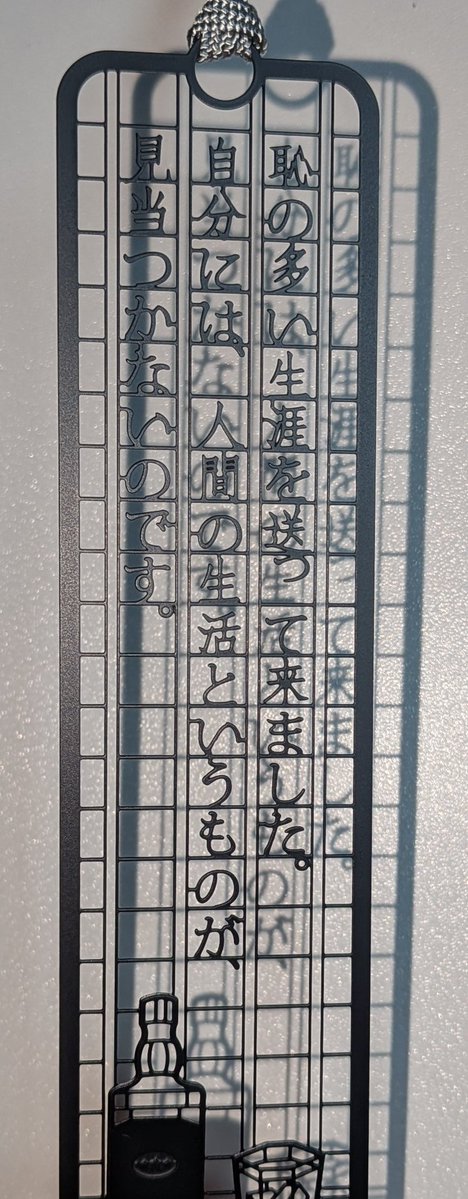 恥の多い生涯を送って来ました。
自分には、人間の生活というものが、
見当つかないのです。